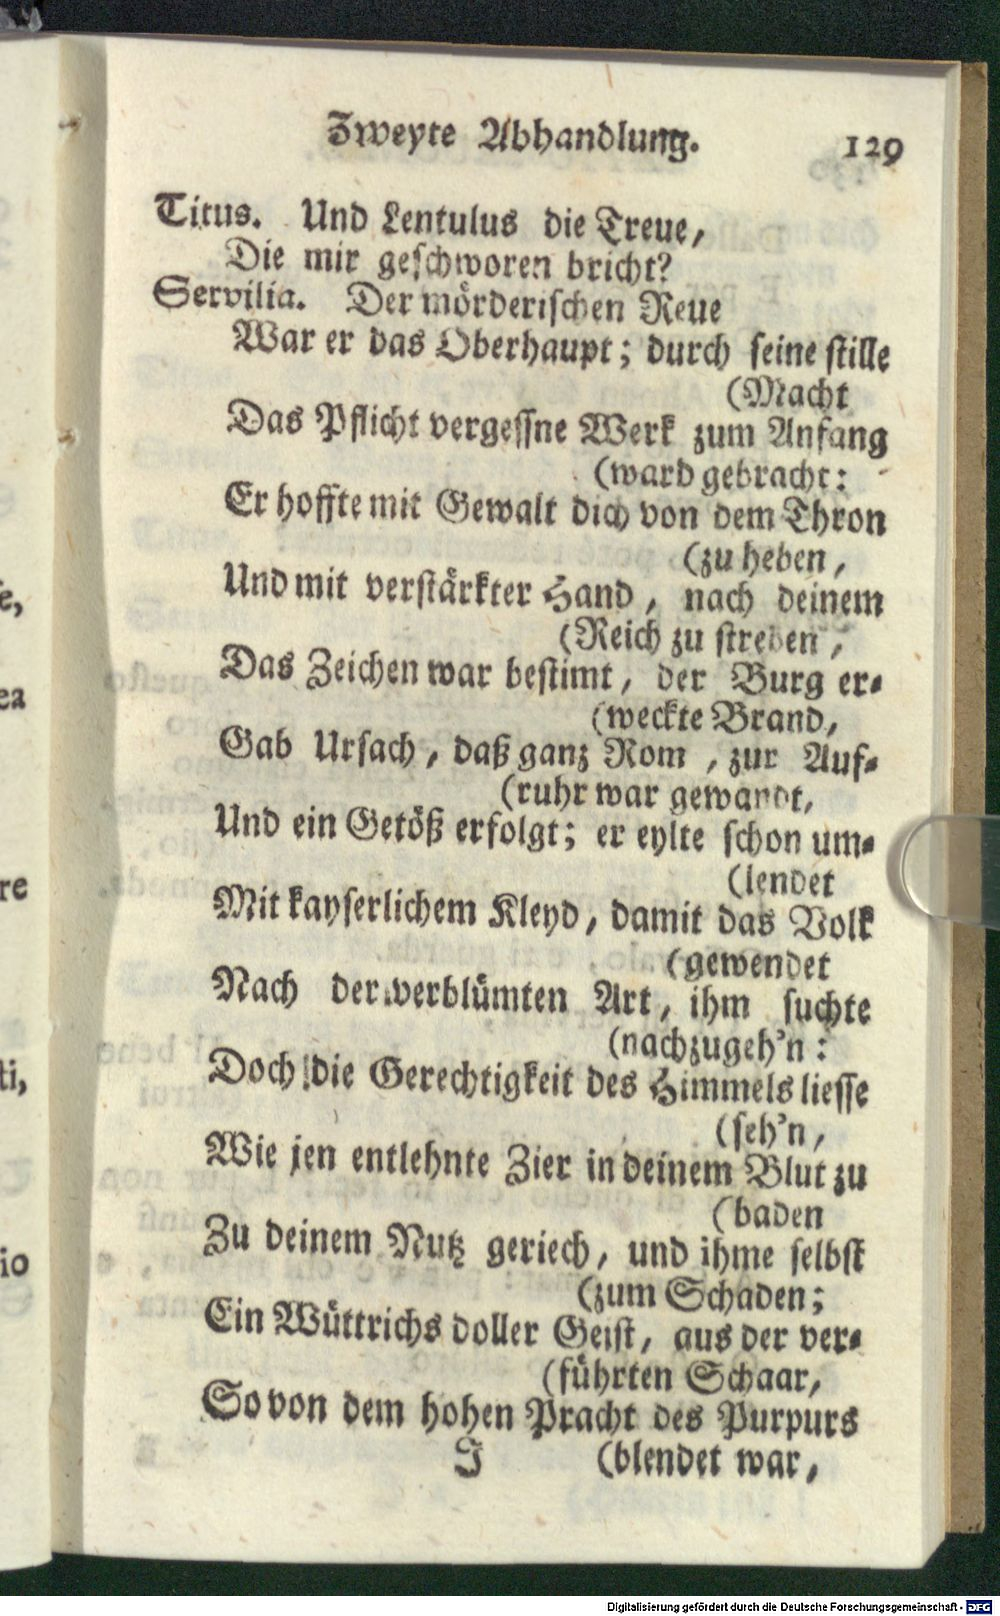 Zweyte Abhandlung. 129
Titus. Und Lentulus die Treue,
Die mir geschworen bricht?
Servilia. Der mörderischen Reue
War er das Oberhaupt; durch seine stille
(Macht
Das Pflicht vergessne Werk zum Anfang
(ward gebracht:
Er hoffte mit Gewalt dich von dem Thron
(zu heben,
Und mit verstärkter Hand, nach deinem
(Reich zu streben,
Das Zeichen war bestimt, der Burg er-
(weckte Brand,
Gab Ursach, daß ganz Rom, zur Auf-
(ruhr war gewandt,
Und ein Getöß erfolgt; er eylte schon um-
(lendet
Mit kayserlichem Kleyd, damit das Volk
(gewendet
Nach der verblümten Art, ihm suchte
(nachzugeh'n:
Doch die Gerechtigkeit des Himmels liesse
(seh'n,
Wie jen entlehnte Zier in deinem Blut zu
(baden
Zu deinem Nutz geriech, und ihme selbst
(zum Schaden;
Ein Wüttrichs doller Geist, aus der ver-
(führten Schaar,
So von dem hohen Pracht des Purpurs
J (blendet war,
e,
ea
re
ti,
io
Digitalisierung gefördert durch die Deutsche Forschungsgemeinschaft - DFG